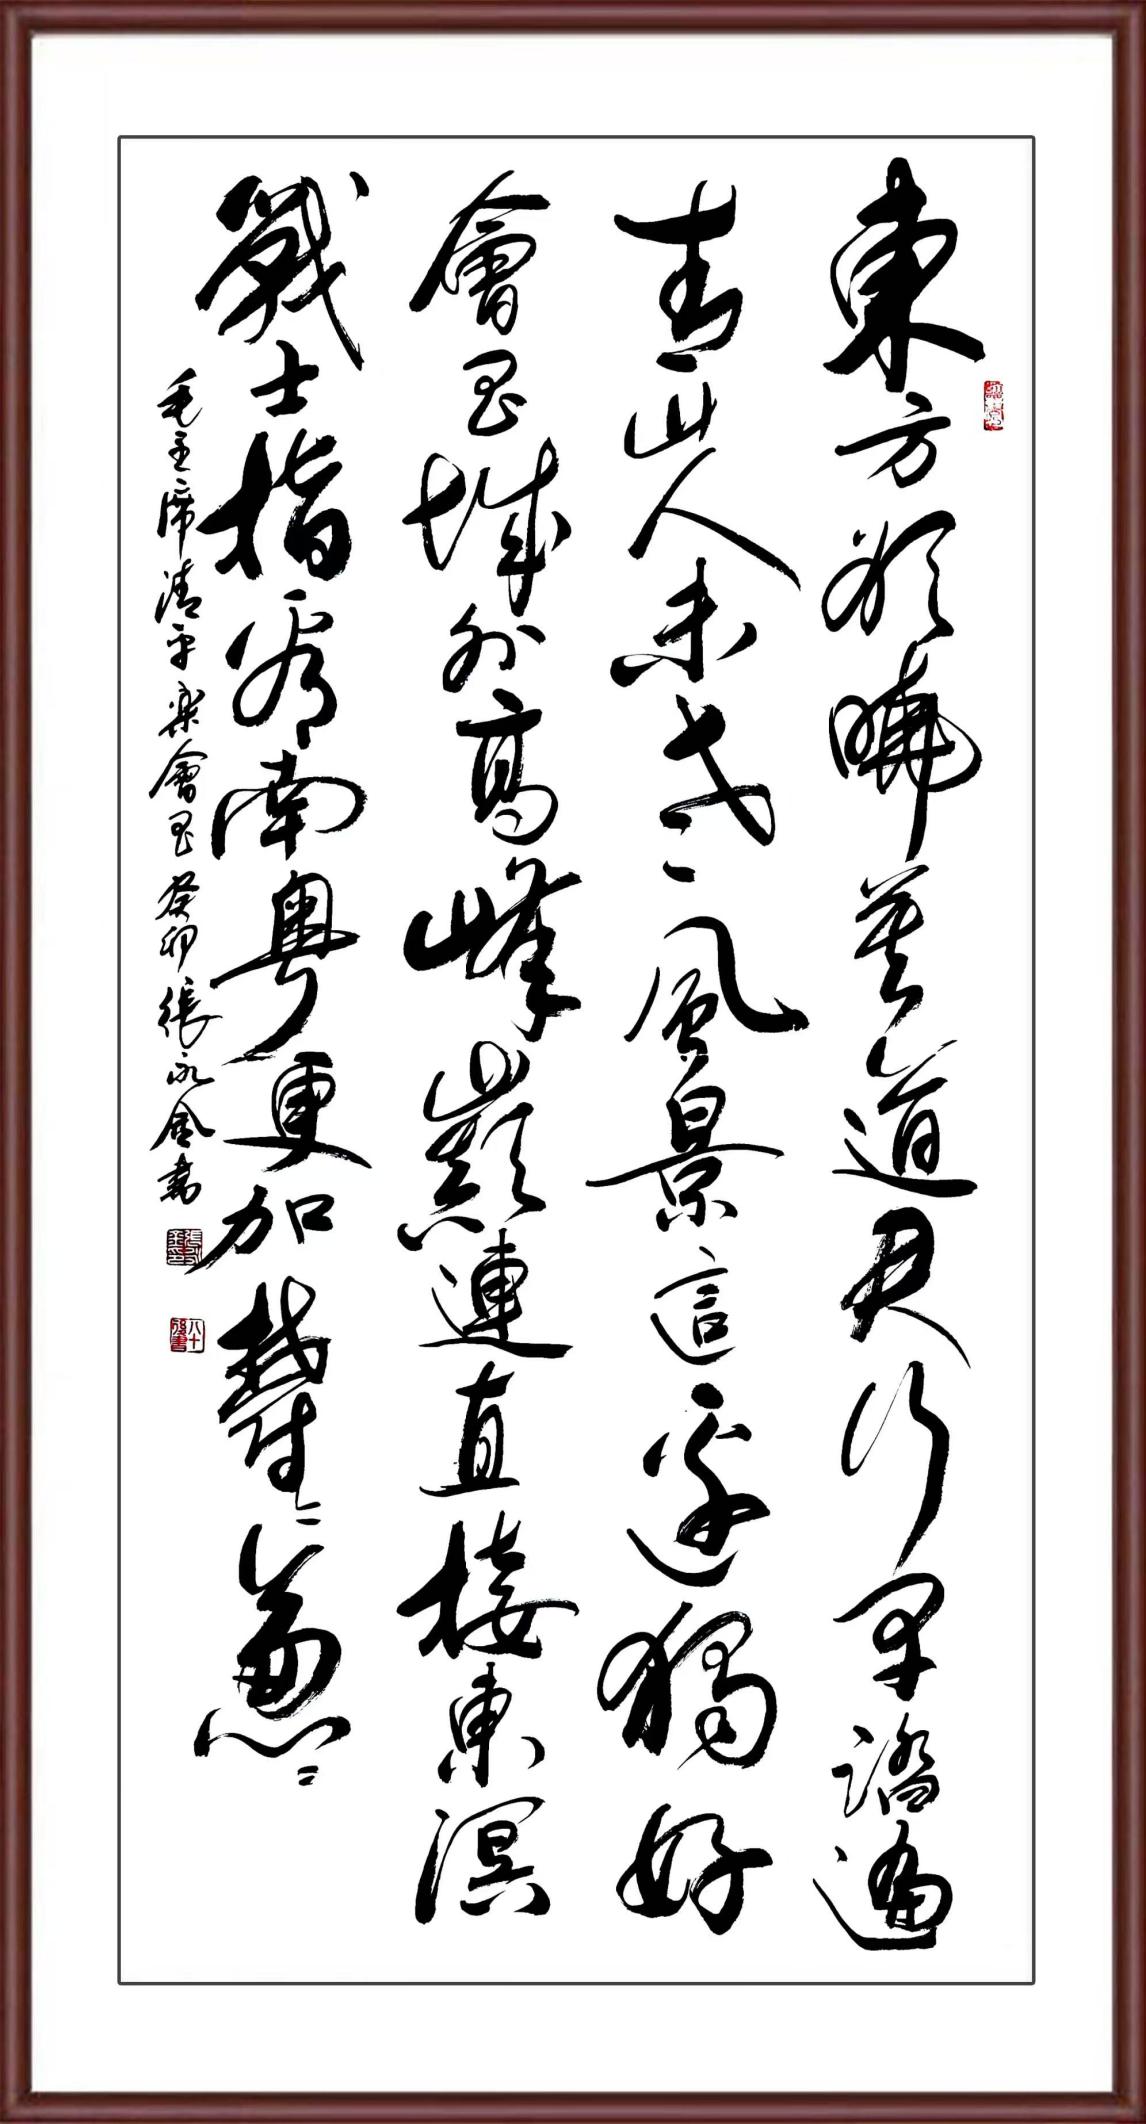 東方欲曉莫道君行早踏遍
青山人未老風景這邊獨好
會昌城外高峰巔連直接東溟
戰士指看南粵更加鬱〻蔥〻
毛主席清平樂會昌癸卯張永金書